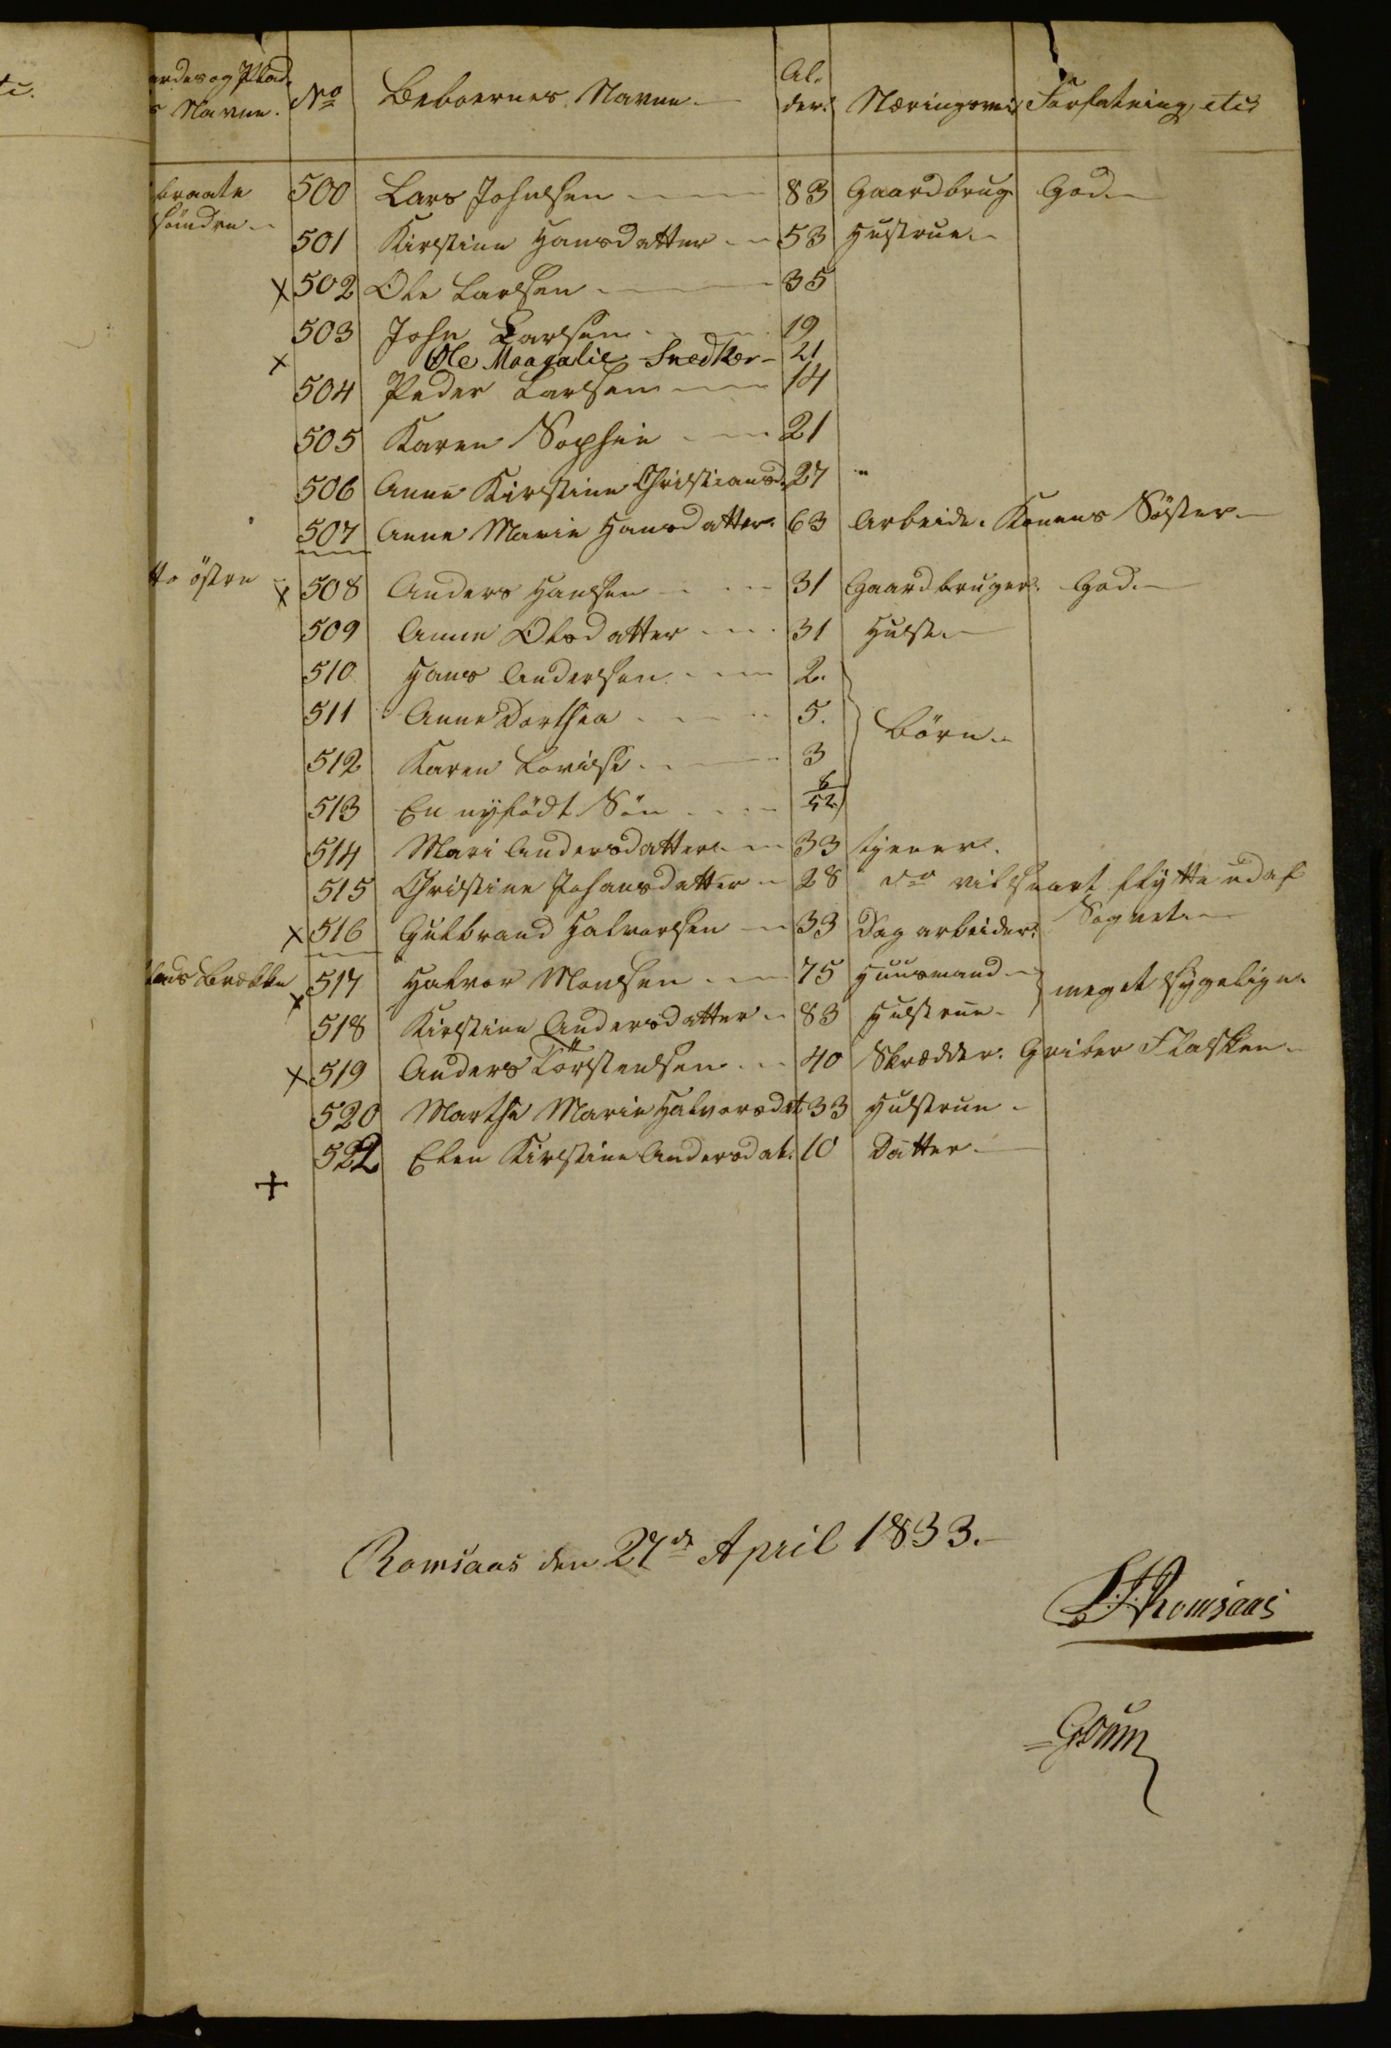 tc.
ardes og Plad.
s Navne. No Beboernes Navne. Al.
der. Næringsvei Forfatning etc.
braate 500 Lars Johnsen 83 Gaardbrug God.
söndre 501 Kirstine Hansdatter 53 Hustrue.
x 502 Ole Larsen 35
503 John Larsen 19
x Ole Maagalie Snedker 21
504 Peder Larsen 14
505 Karen Sophie 21
506 Anne Kirstine Christiansd. 27 "
507 Anne Marie Hansdatter. 63 Arbeide. Konens Söster.
tto östre x 508 Anders Hansen 31 Gaardbruger. God.
509 Anne Olsdatter 31 Hust.
510 Hans Andersen 2.
511 Anne Dorthea 5. Börn.
512 Karen Lovise 3
513 En nyfödt Sön 6/52
514 Mari Andersdatter 33 tjener.
515 Christine Johansdatter 28 do vil snart flytte ud af
x 516 Gulbrand Halvorsen 33 Dagarbeider. Sognet.
Brække 517 Halvor Monsen 75 Huusmand meget sygelige.
x 518 Kirstine Andersdatter 83 Hustrue.
x 519 Anders Törstensen 40 Skrædder. Griber Flasken.
520 Marthe Marie Halvorsdat 33 Hustrue.
522 Elen Kirstine Andersdat. 10 Datter.
+
Romsaas den 27de April 1833.
Romsaas